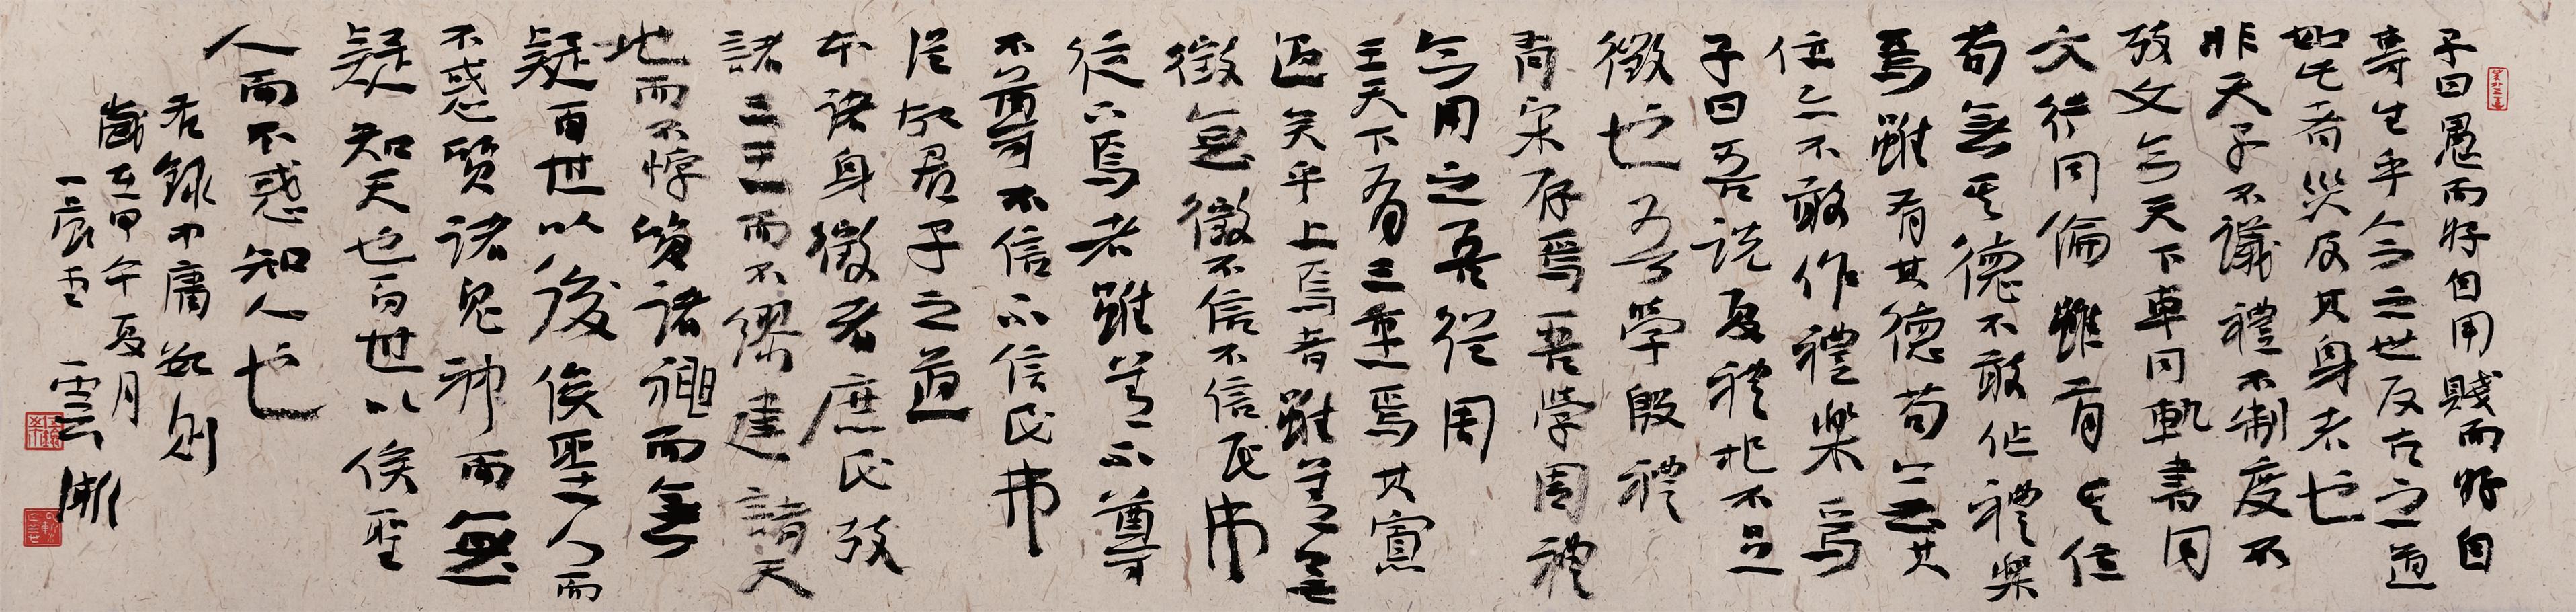 子曰愚而好自用賤而好自
專生乎今之世反古之道
如此者災及其身者也
非天子不議禮不制度不
攷文今天下車同軌書同
文行同倫雖有其位
苟無其德不敢作禮樂
焉雖有其德苟無其
位亦不敢作禮樂焉
子曰吾説夏禮杞不足
徵也吾學殷禮
有宋存焉吾學周禮
今用之吾從周
王天下有三重焉其寡
過矣乎上焉者雖善無
徵無徵不信不信民弗
從下焉者雖善不尊
不尊不信不信民弗
從故君子之道
本諸身徵者庶民攷
諸三王而不繆建諸天
地而不悖質諸而無
疑百世以後俟聖人而
不惑質諸鬼神而無
疑知天也百世以俟聖
人而不惑知人也
右録中庸數則
歲在甲午夏月
一 堂 一雲